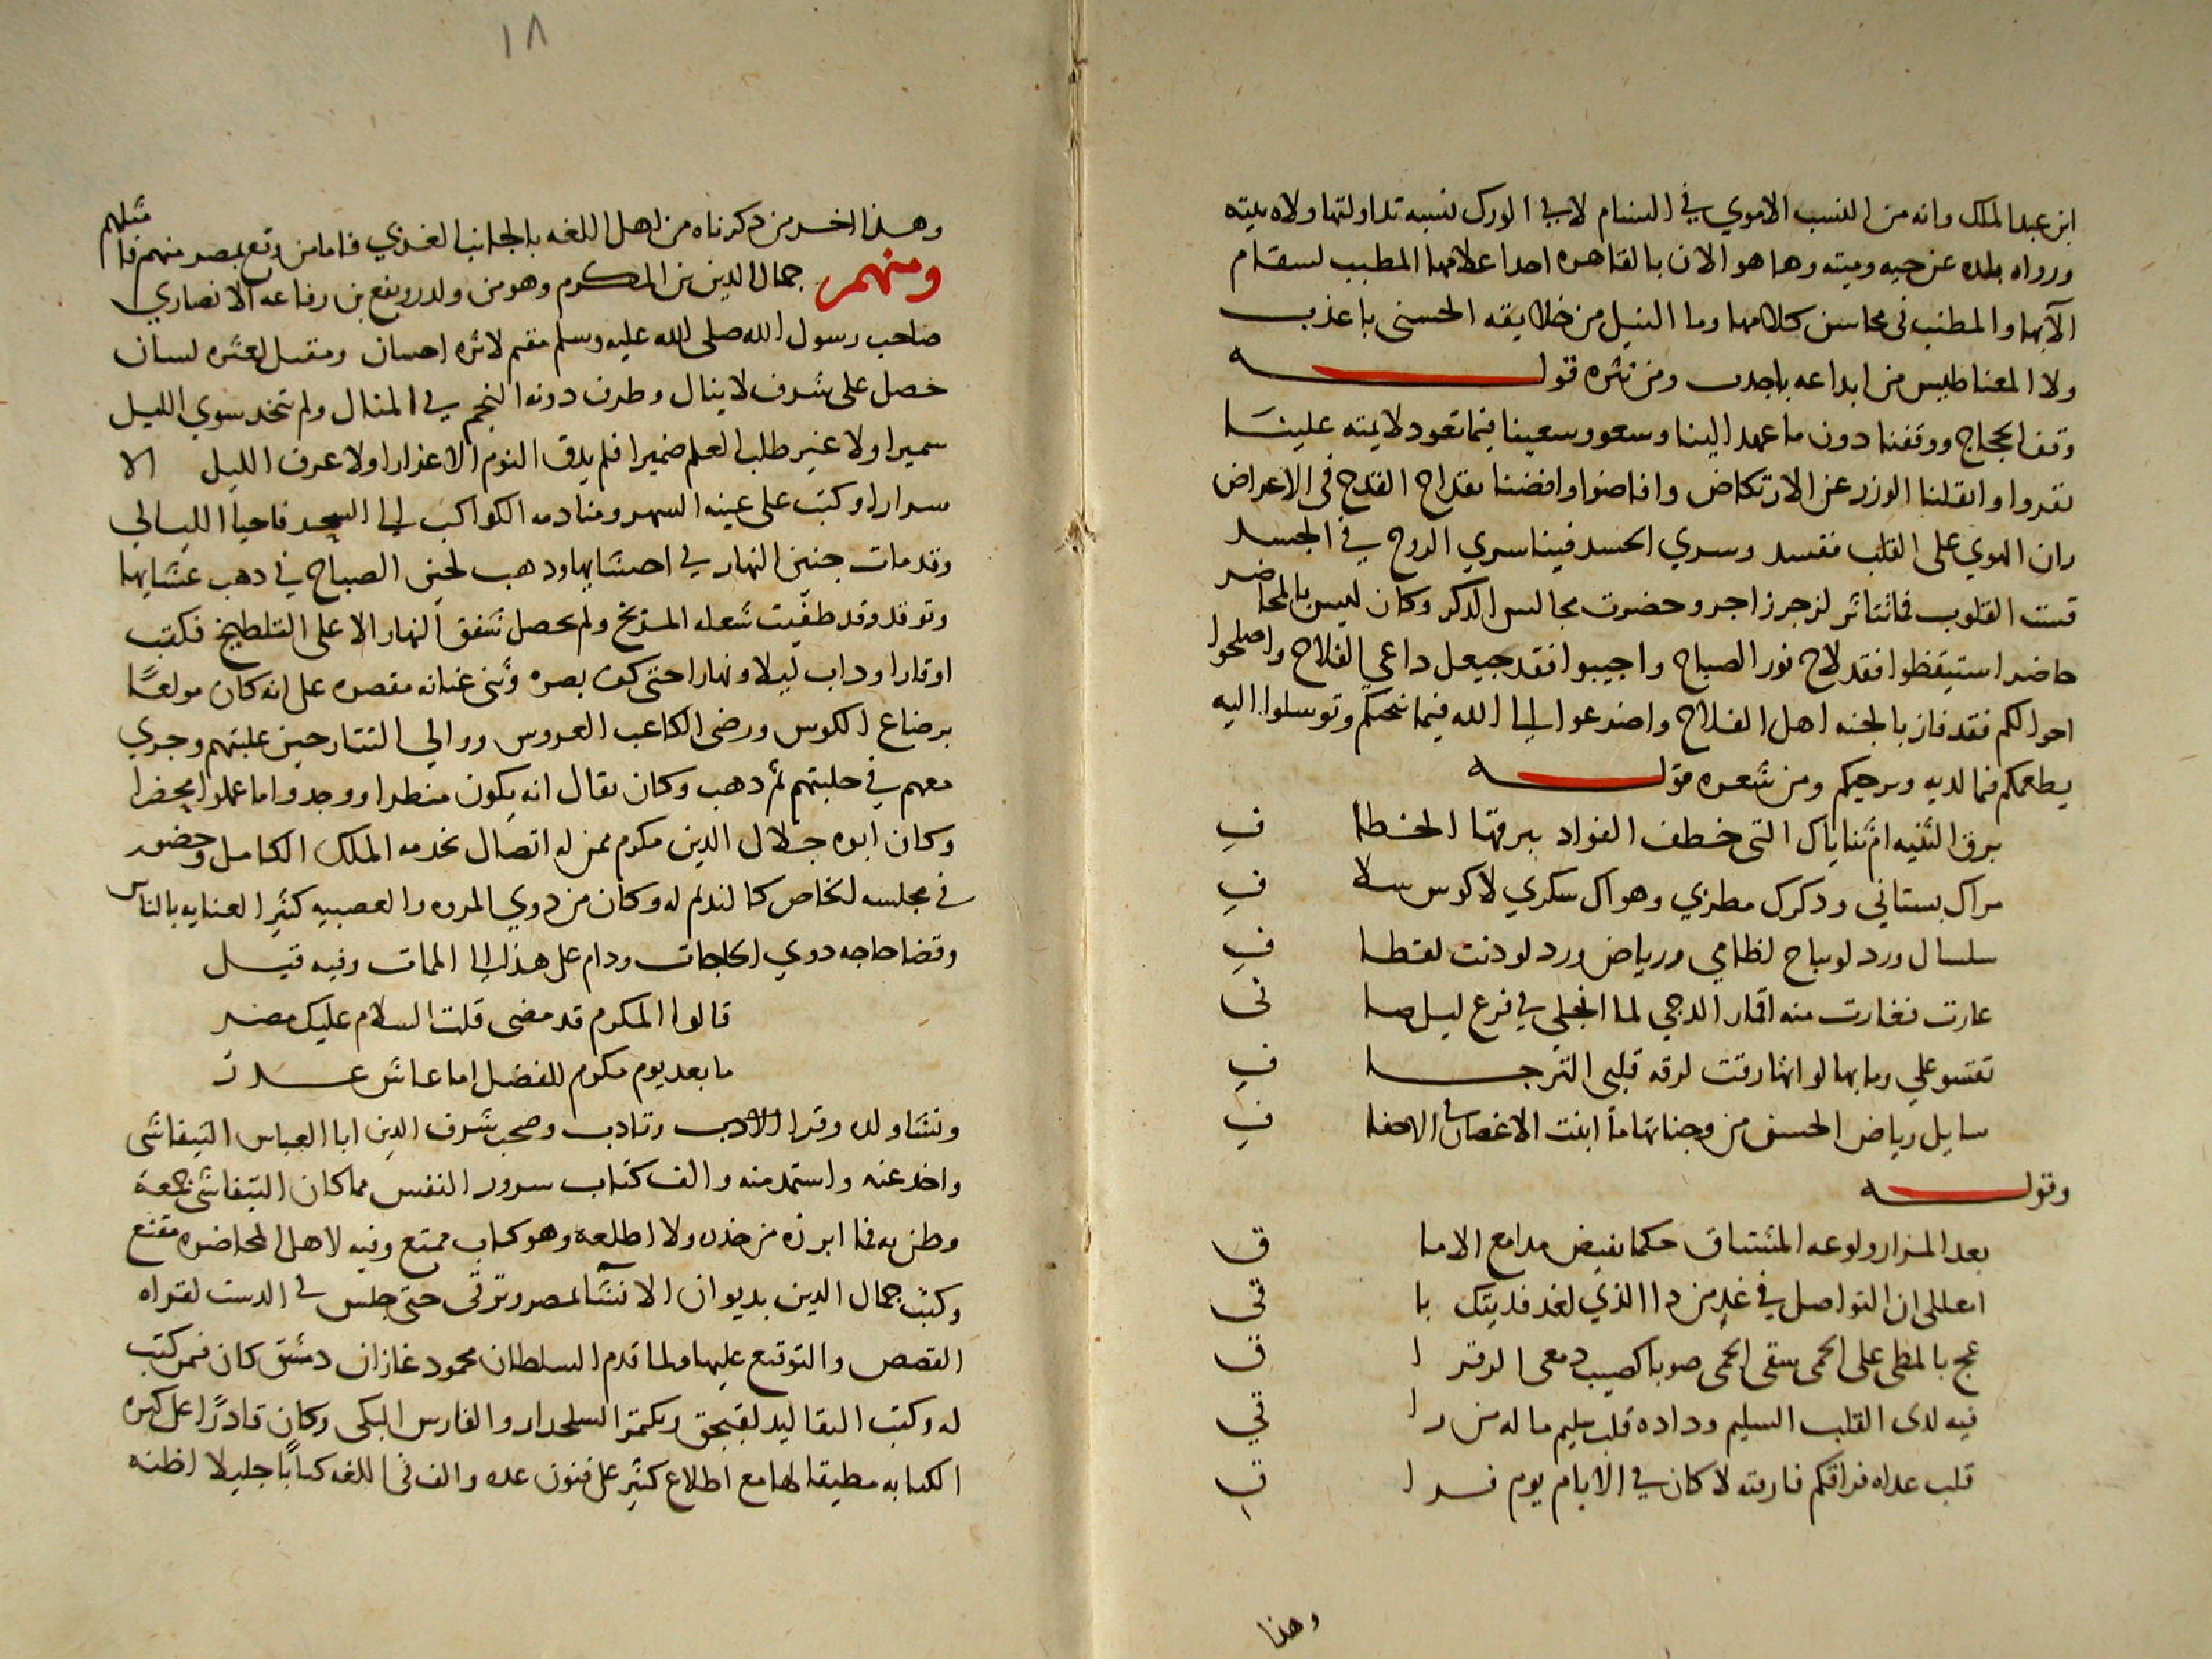 ابن عبد الملك وانه من النسب الاموي في السنام لا في الورك نسبه تداولتها ولاه بيته
ورواه بلده عن حيه وميته وها هو الان بالقاهره احد اعلامها المطبب لسقام
الآبها والمطنب في محاسن كلامها وما النيل من خلايقه الحسنى باعذب
ولا المغناطيس من ابداعه باجدب ومن نثره قوله
وقف الحجاج ووقفنا دون ما عهد الينا وسعو وسعينا فيما تعود لايمته علينا
نفروا واثقلنا الوزر عن الارتكاض وافاضوا وافضنا بقداح القدح في الاعراض
ران الهوي على القلب ففسد وسري الحسد فينا سري الروح في الجسد
قست القلوب فما تتاثر لزجر زاجر وحضرت مجالس الذكر وكان ليس بالمحاضر
حاضر استيقظوا فقد لاح نور الصباح واجيبوا فقد حيعل داعي الفلاح واصلحوا
احوالكم فقد فاز بالجنه اهل الفلاح واضرعوا الى الله فيما نحكم وتوسلوا اليه
يطعمكم فما لديه ويرحمكم ومن شعره قوله
برق الثنيه ام ثناياك التي خطف الفواد ببرقها الخطا ف
مراك بستاني وذكرك مطربي وهواك سكري لا كوس سلا ف
سلسال ورد لو يباح لظامي ورياض ورد لو دنت لقطا ف
غارت فغارت منه اقمار الدجي لما انجلي في فرع ليل ضا في
تقسو علي وما بها لو انها رقت لرقه قلبي الترجا ف
سايل رياض الحسن من وجناتها ما انبت الاغصان في الاحقا ف
وقوله
بعد المزار ولوعه المشتاق حكما بفيض مدامع الاما ق
امعللي ان التواصل في غد من ذا الذي لغد فديتك با قي
عج بالمطي على الحمى سقى الحمى صوبا كصيب دمعي الرقرا ق
فيه لدى القلب السليم وداده قلب سليم ما له من را قي
قلب غداه فراقكم فارقته لا كان في الايام يوم فرا ق
وهذا
١٨
وهذا اخر من ذكرناه من اهل اللغه بالجانب الغربي فاما من وقع بمصر منهم فا مثلهم
ومنهم جمال الدين بن المكرم وهو من ولد رويفع بن رفاعه الانصاري
صاحب رسول الله صلى الله عليه وسلم مقيم لاثره احسان ومقيل لعثره لسان
حصل على شرف لا ينال وطرف دونه النجم في المنال ولم تتخذ سوي الليل
سميرا ولا غير طلب العلم ضميرا فلم يذق النوم الا غرارا ولا عرف الليل الا
سرارا وكتب على عينه السهر ومنادمه الكواكب الى السحر فاحيا الليالي
وقد مات جنين النهار في احشايها وذهب لجين الصباح في ذهب عشايها
وتوقد وقد طفيت شعله المريخ ولم يحصل شفق النهار الا على التلطيخ فكتب
اوقارا وداب ليلا ونهارا حتى كف بصره وثنى عنانه مقصره على انه كان مولعًا
برضاع الكوس ورضى الكاعب العروس ووالي التتار حين غلبتهم وجري
معهم في حلبتهم ثم ذهب وكان يقال انه يكون منظرا ووجدوا ما عملوا محضرا
وكان ابوه جلال الدين مكرم ممن له اتصال بخدمه الملك الكامل وحضور
في مجلسه الخاص كالنديم له وكان من ذوي المروه والعصبيه كثير العنايه بالناس
وقضا حاجه ذوي الحاجات ودام على هذا الى الممات وفيه قيل
قالوا المكرم قد مضى قلت السلام عليك مصر
ما بعد يوم مكرم للفضل اما عاش عذر
ونشا ولده وقرا الادب وتادب وصحب شرف الدين ابا العباس التيفاشى
واخذ عنه واستمد منه والف كتاب سرور النفس مما كان التيفاشى جمعه
وظن به فما ابرزه من خدره ولا اطلعه وهو كتاب ممتع وفيه لاهل المحاضره مقنع
وكتب جمال الدين بديوان الانشا بمصر وترقى حتى جلس في الدست لقراه
القصص والتوقيع عليها ولما قدم السلطان محمود غازان دمشق كان فمن كتب
له وكتب التقاليد لقبجق وبكتمر السلحدار والفارس البكى وكان قادرًا على كثره
الكتابه مطيقا لها مع اطلاع كثير على فنون عده والف في اللغه كتابًا جليلا اظنه